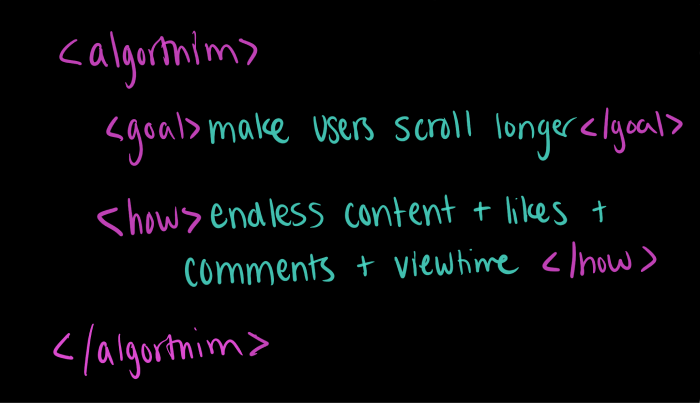 <algorthim>
<goal> make users scroll longer </goal>
<how> endless content + likes +
comments + viewtime </how>
</algorthim>